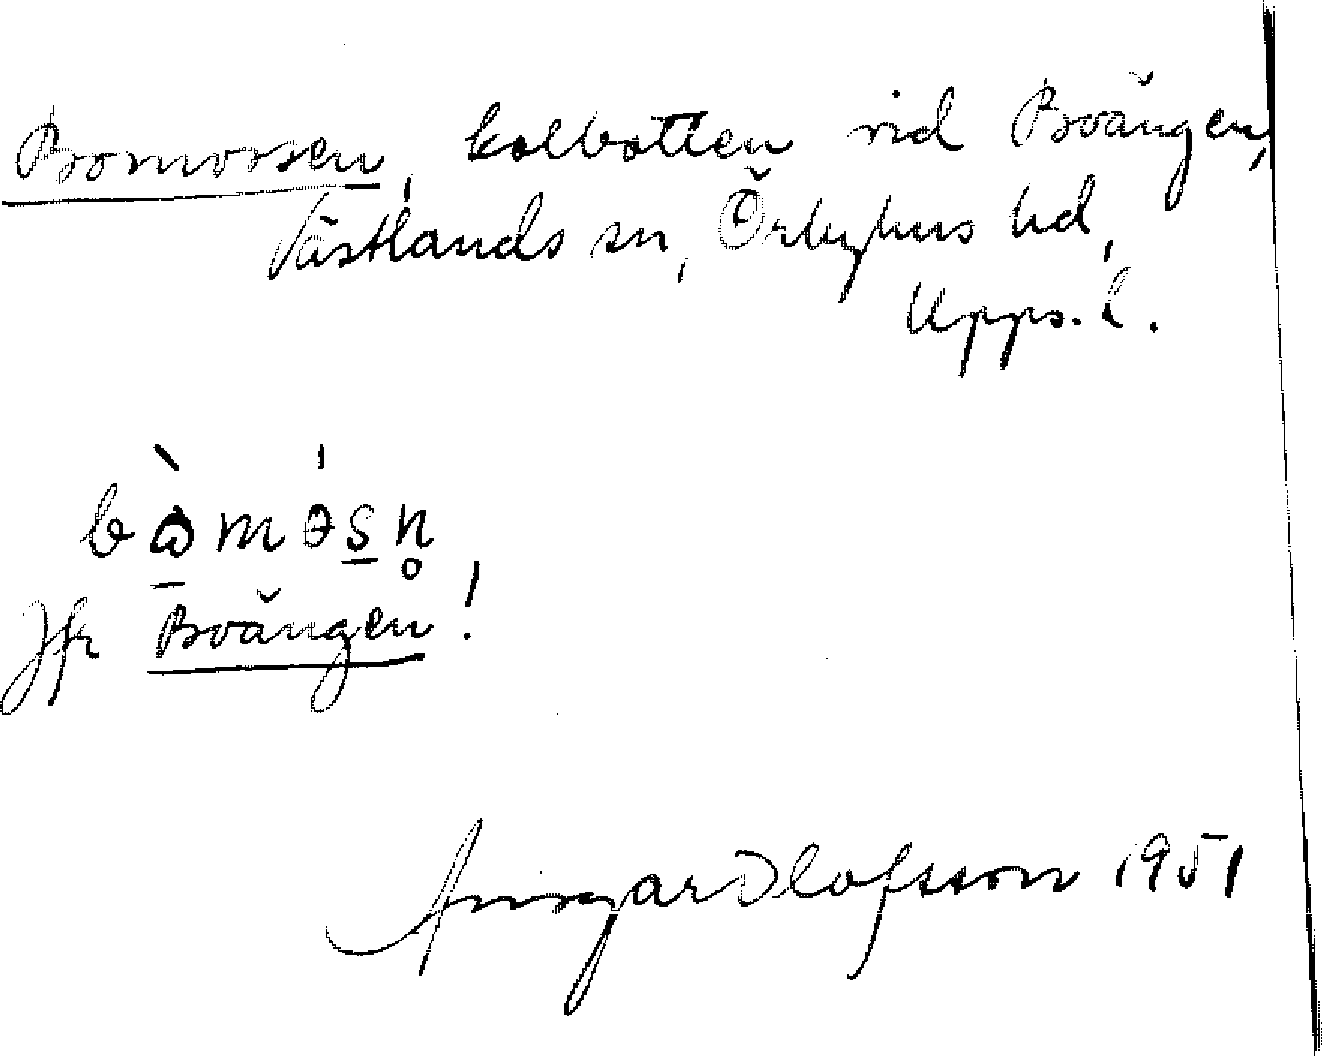 Bomossen, kolbotten vid Boängen,
Västlands sn, Örbyhus hd,
Upps. l.
b ὼ m ɵ́ s n̥
Jfr Boängen!
Ansgar Olofsson 1951